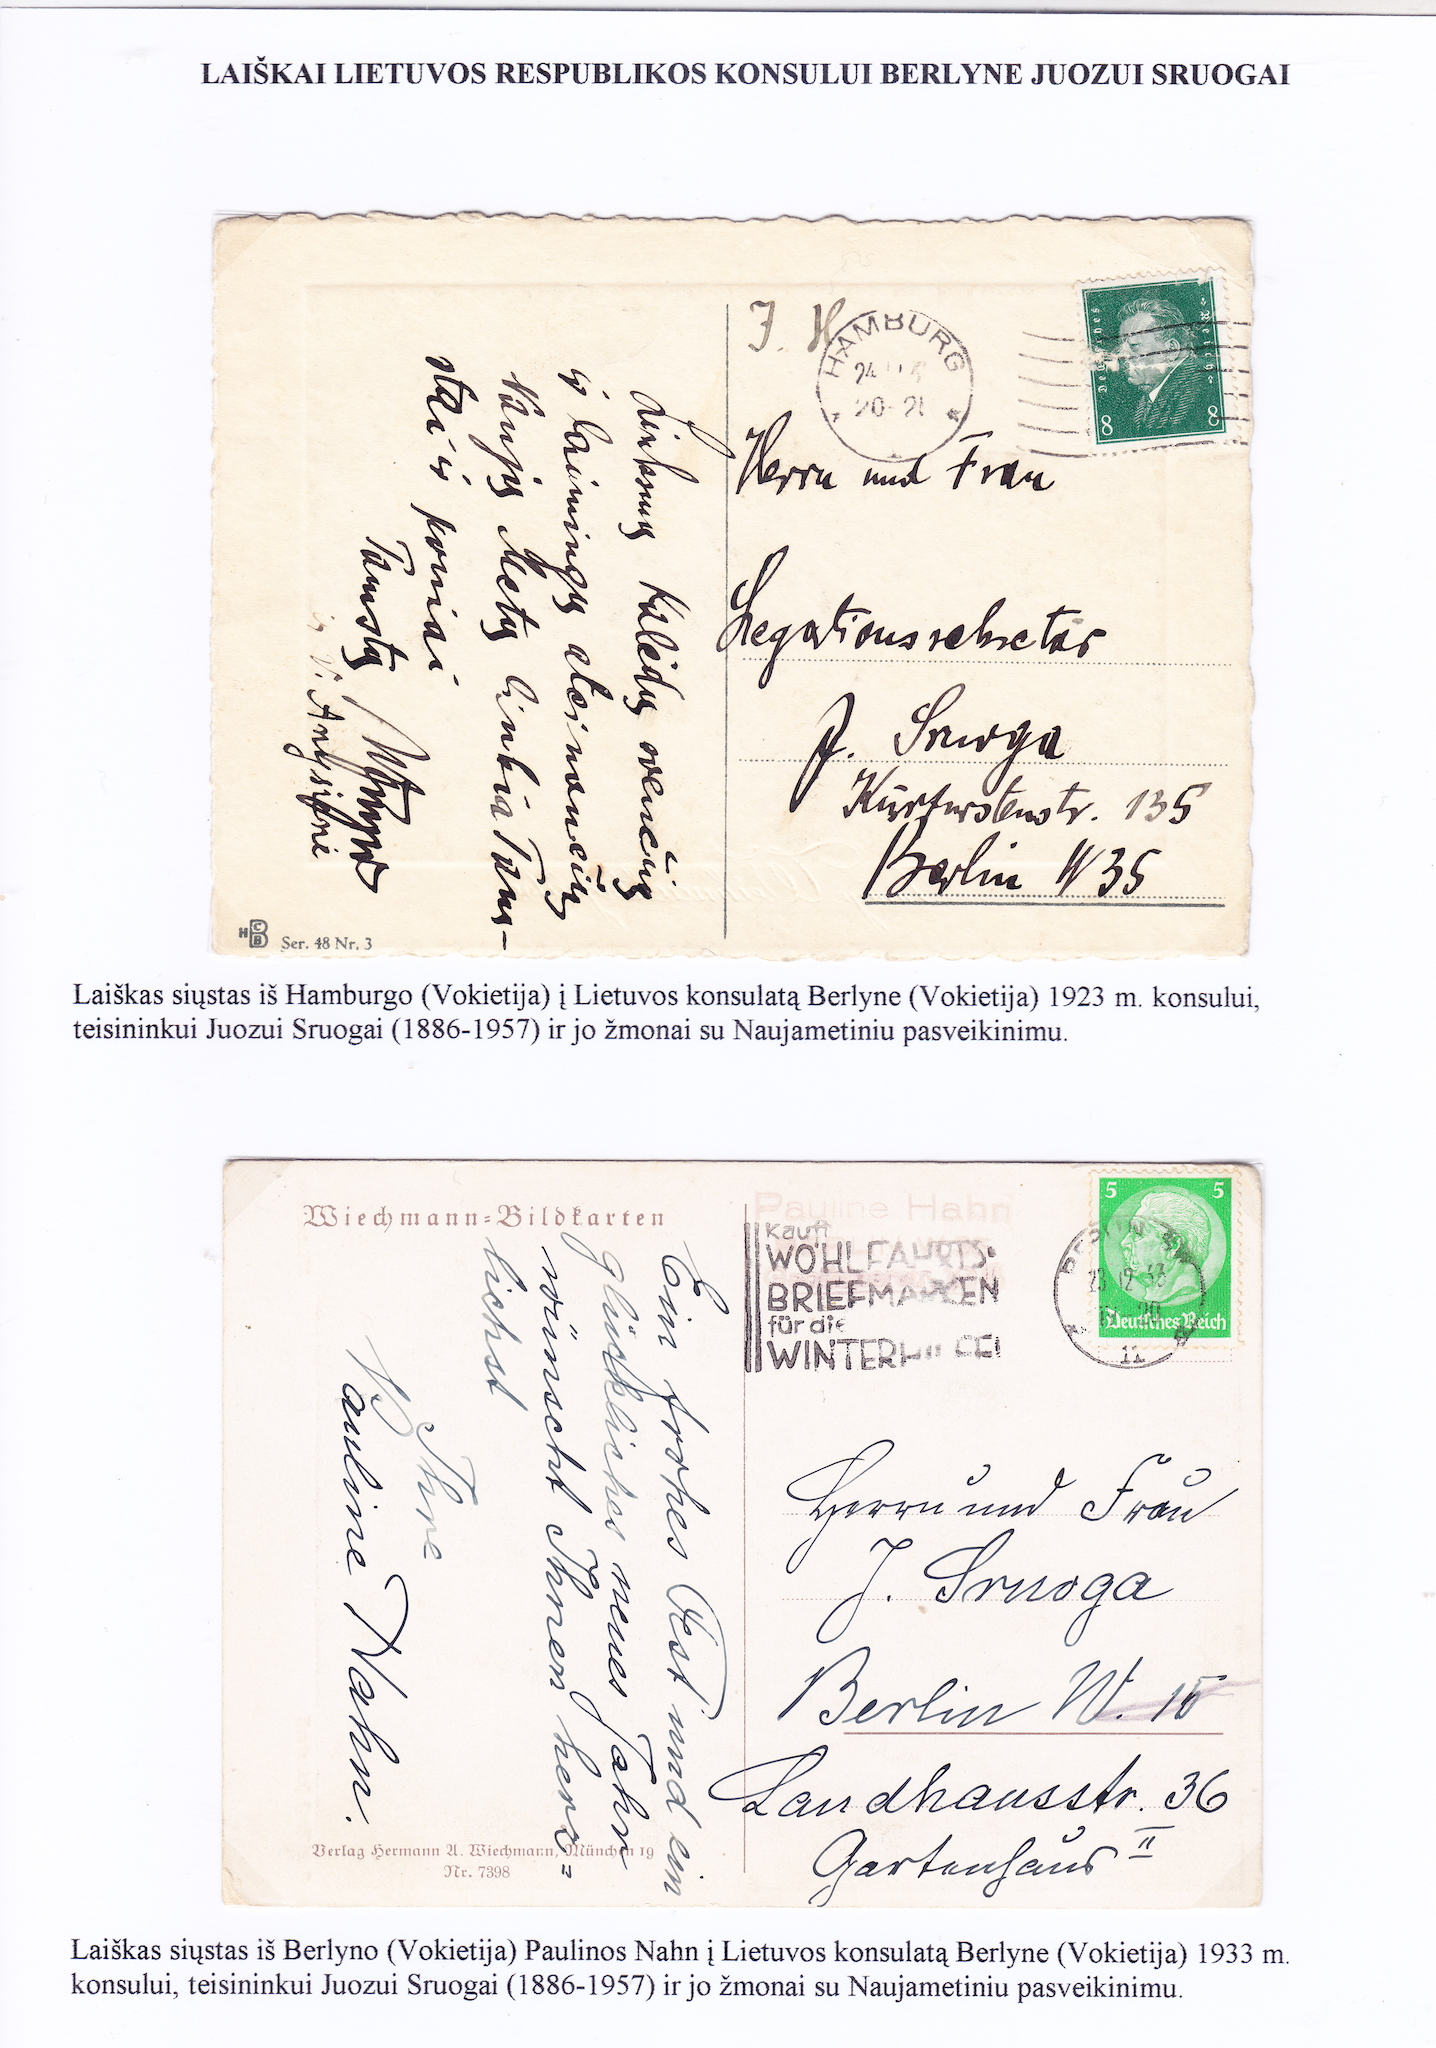 LAIŠKAI LIETUVOS RESPUBLIKOS KONSULUI BERLYNE JUOZUI SRUOGAI
J. H.
HAMBURG
20-21
Deutsches Reich
8 8
Herrn und Frau
Legationssekretär
J. Sruoga
Kürfürstenstr. 135
Berlin W 35
Linksmų Kalėdų švenčių
ir laimingų ateinančių
Naujų Metų linkia Tams-
stai ir poniai
Tamstų
ir V. Anysienė
HCBB
Ser. 48 Nr. 3
Laiškas siųstas iš Hamburgo (Vokietija) į Lietuvos konsulatą Berlyne (Vokietija) 1923 m. konsului,
teisininkui Juozui Sruogai (1886-1957) ir jo žmonai su Naujametiniu pasveikinimu.
Wiechmann=Bildkarten
Pauline Hahn
Kauft
WOHLFAHRTS-
BRIEFMARKEN
für die
WINTERHILFE!
BERLIN
23 12 33
11
5 5
Deutsches Reich
Ein frohes Fest und ein
glückliches neues Jahr
wünscht Ihnen herz=
lichst
Ihre
Pauline Hahn.
Herrn und Frau
J. Sruoga
Berlin W. 15
Landhausstr. 36
Gartenhaus II
Verlag Hermann A. Wiechmann, München 19
Nr. 7398
Laiškas siųstas iš Berlyno (Vokietija) Paulinos Nahn į Lietuvos konsulatą Berlyne (Vokietija) 1933 m.
konsului, teisininkui Juozui Sruogai (1886-1957) ir jo žmonai su Naujametiniu pasveikinimu.